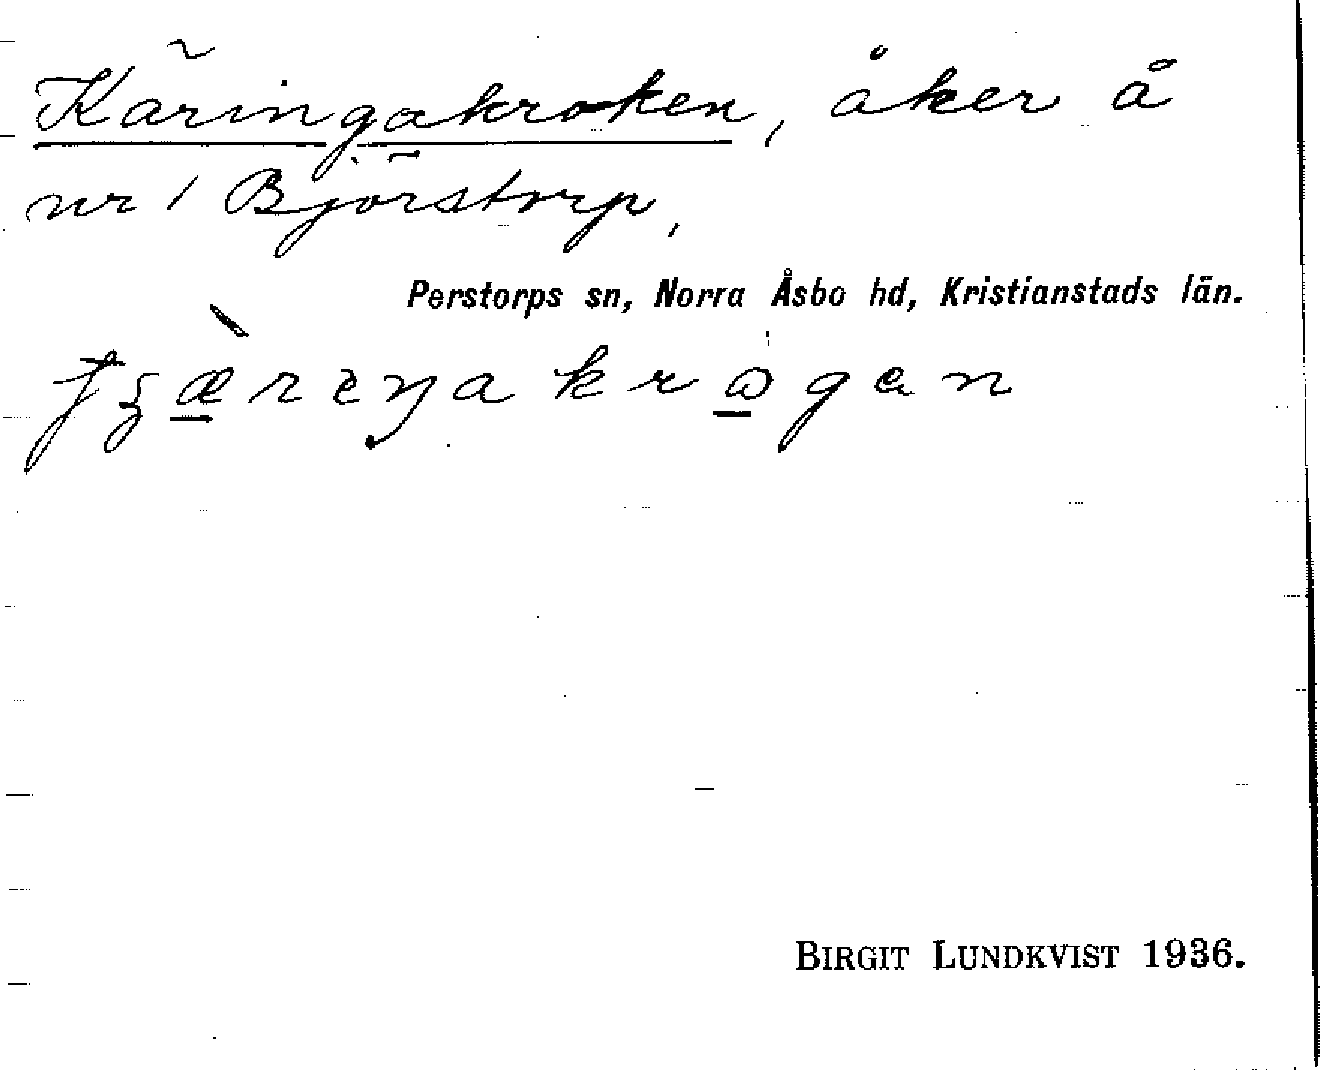 Käringakroken, åker å
nr 1 Björstorp,
Perstorps sn, Norra Åsbo hd, Kristianstads län.
BIRGIT LUNDKVIST 1936.